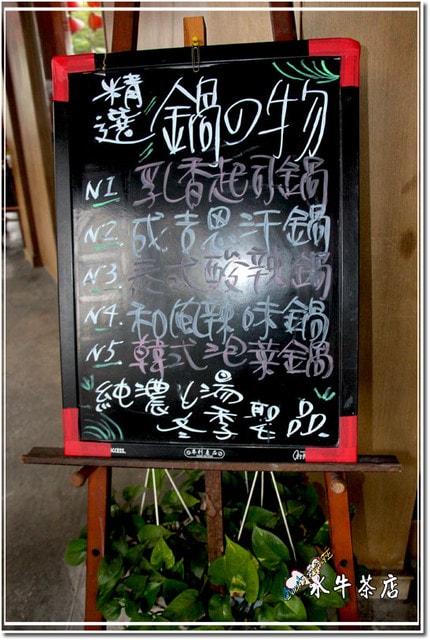 精選 鍋の物
N1. 乳香起司鍋
N2. 成吉思汗鍋
N3. 泰式酸辣鍋
N4. 和風辣味鍋
N5. 韓式泡菜鍋
純濃心湯
冬季聖品
水牛茶店